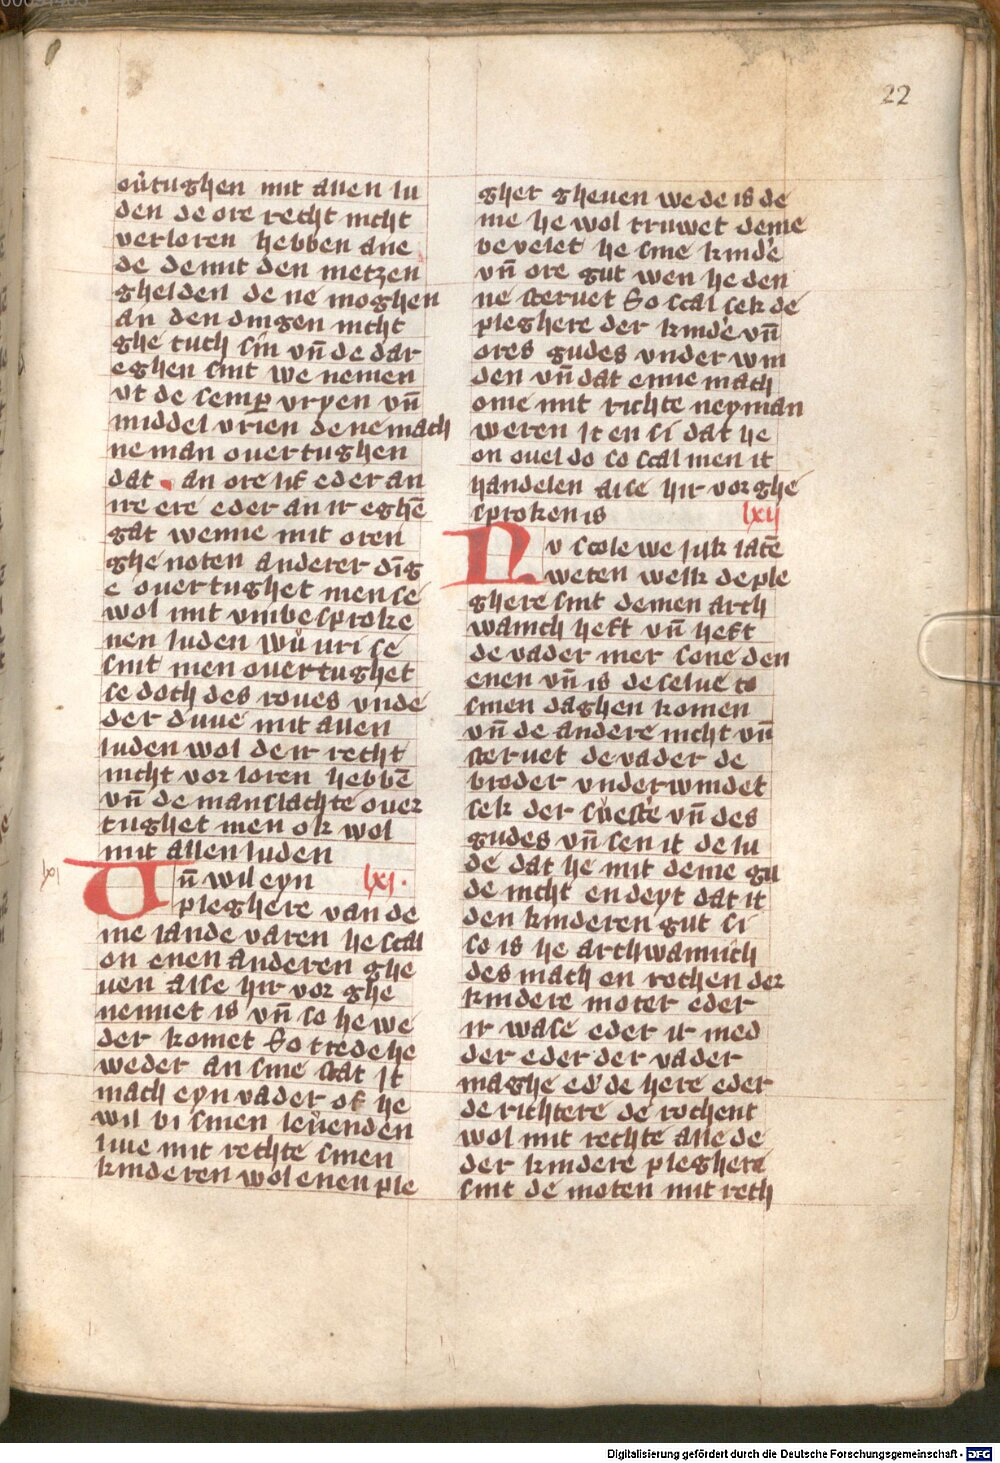 22
ou᷑tughen mit allen lu
den de ore recht nicht
verloren hebben ane
de demit den metzen
ghelden de ne moghen
an den dingen nicht
ghe tuch sin vn̄ de dar
eghen sint we nemen
vt de semꝑ vryen vn̄
middel vrien de ne mach
ne man ouertughen
dat an ore lif eder an
ire ere eder an ir eghē
gat wenne mit oren
ghe noten anderer dīg
e ouertughet men se
wol mit vmbesproke
nen luden wu vri se
sint men ouertughet
se doch des roues vnde
der duue mit allen
luden wol de ir recht
nicht vorloren hebbē
vn̄ de manslachte ouer
tughet men ok wol
mit allen luden
lxi
Un̄ wil eyn lxi.
pleghere van de
me lande varen he scal
on enen anderen ghe
uen alse hir vor ghe
nennet is vn̄ so he we
der komet So trede he
weder an sine stat it
mach eyn vader of he
wil bi sinen leuenden
liue mit rechte sinen
kinderen wol enen ple
gher gheuen we de is de
me he wol truwet deme
beuelet he sine kind'e
vn̄ ore gut wen he den
ne steruet So scal sek de
pleghere der kind'e vn̄
ores gudes vnder win
den vn̄ dat enne mach
ome mit richte neyman
weren it en si dat he
on ouel do so scal men it
handelen alse hir vor ghe
sproken is lxij
Nv scole we juk latē
weten welk de ple
ghere sint demen arch
wanich heft vn̄ heft
de vader mer sone den
enen vn̄ is de selue to
sinen daghen komen
vn̄ de andere nicht vn̄
steruet de vader de
broder vnderwindet
sek der suest'e vn̄ des
gudes vn̄ sen it de lu
de dat he mit deme gu
de nicht en deyt dat it
den kinderen gut si
so is he archwannich
des mach en rochen der
kindere moter eder
ir wase eder ir med
der eder der vader
maghe ed'de here eder
de richtere de rochent
wol mit rechte alle de
der kindere pleghere
sint de moten mit rech
Digitalisierung gefördert durch die Deutsche Forschungsgemeinschaft - DFG